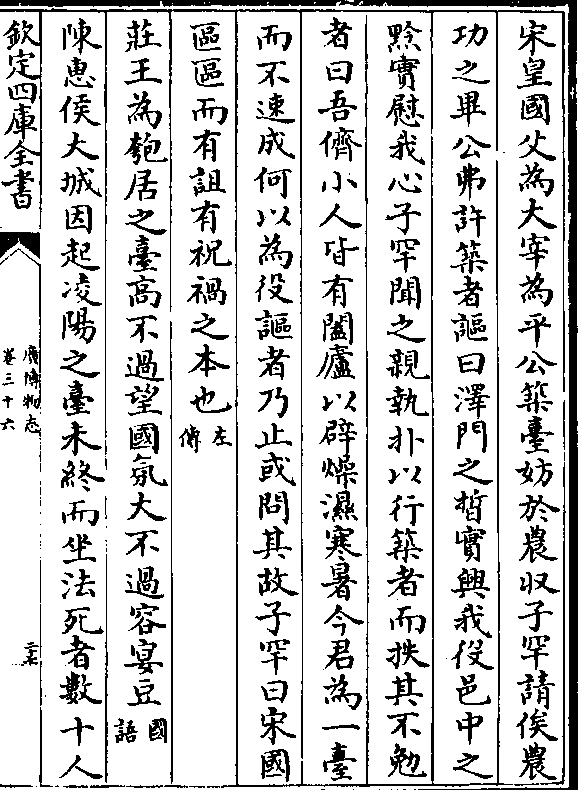 宋皇國父為大宰為平公築臺妨於農收子罕請俟農
功之畢公弗許築者謳曰澤門之晳實興我役邑中之
黔實慰我心子罕聞之親執扑以行築者而抶其不勉
者曰吾儕小人皆有闔廬以辟燥濕寒暑今君為一臺
而不速成何以為役謳者乃止或問其故子罕曰宋國
區區而有詛有祝禍之本也左傳
莊王為匏居之臺高不過望國氛大不過容宴豆國語
陳惠侯大城因起凌陽之臺未終而坐法死者數十人
欽定四庫全書
廣博物志
卷三十六
二十七